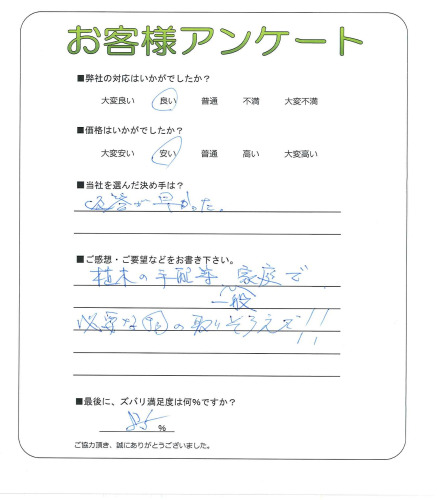 お客様アンケート
■弊社の対応はいかがでしたか?
大変良い 良い 普通 不満 大変不満
■価格はいかがでしたか?
大変安い 安い 普通 高い 大変高い
■当社を選んだ決め手は?
返答が早かった。
■ご感想・ご要望などをお書き下さい。
植木の手配等 家庭で
一般
必要な物の取りそろえで!!
■最後に、ズバリ満足度は何%ですか?
85 %
ご協力頂き、誠にありがとうございました。